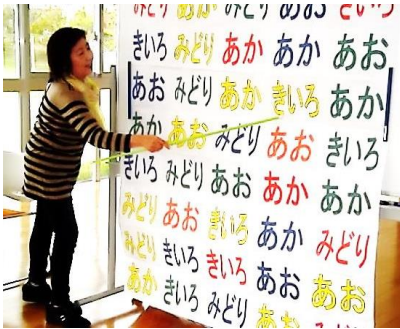 みどり あか みどり あお きいろ
きいろ みどり あか あか あお
あお みどり あか きいろ あか
あか あお みどり あお きいろ
きいろ みどり あお あか あか
みどり あお きいろ あか みどり
みどり きいろ きいろ あお あお
あか きいろ みどり あか みどり